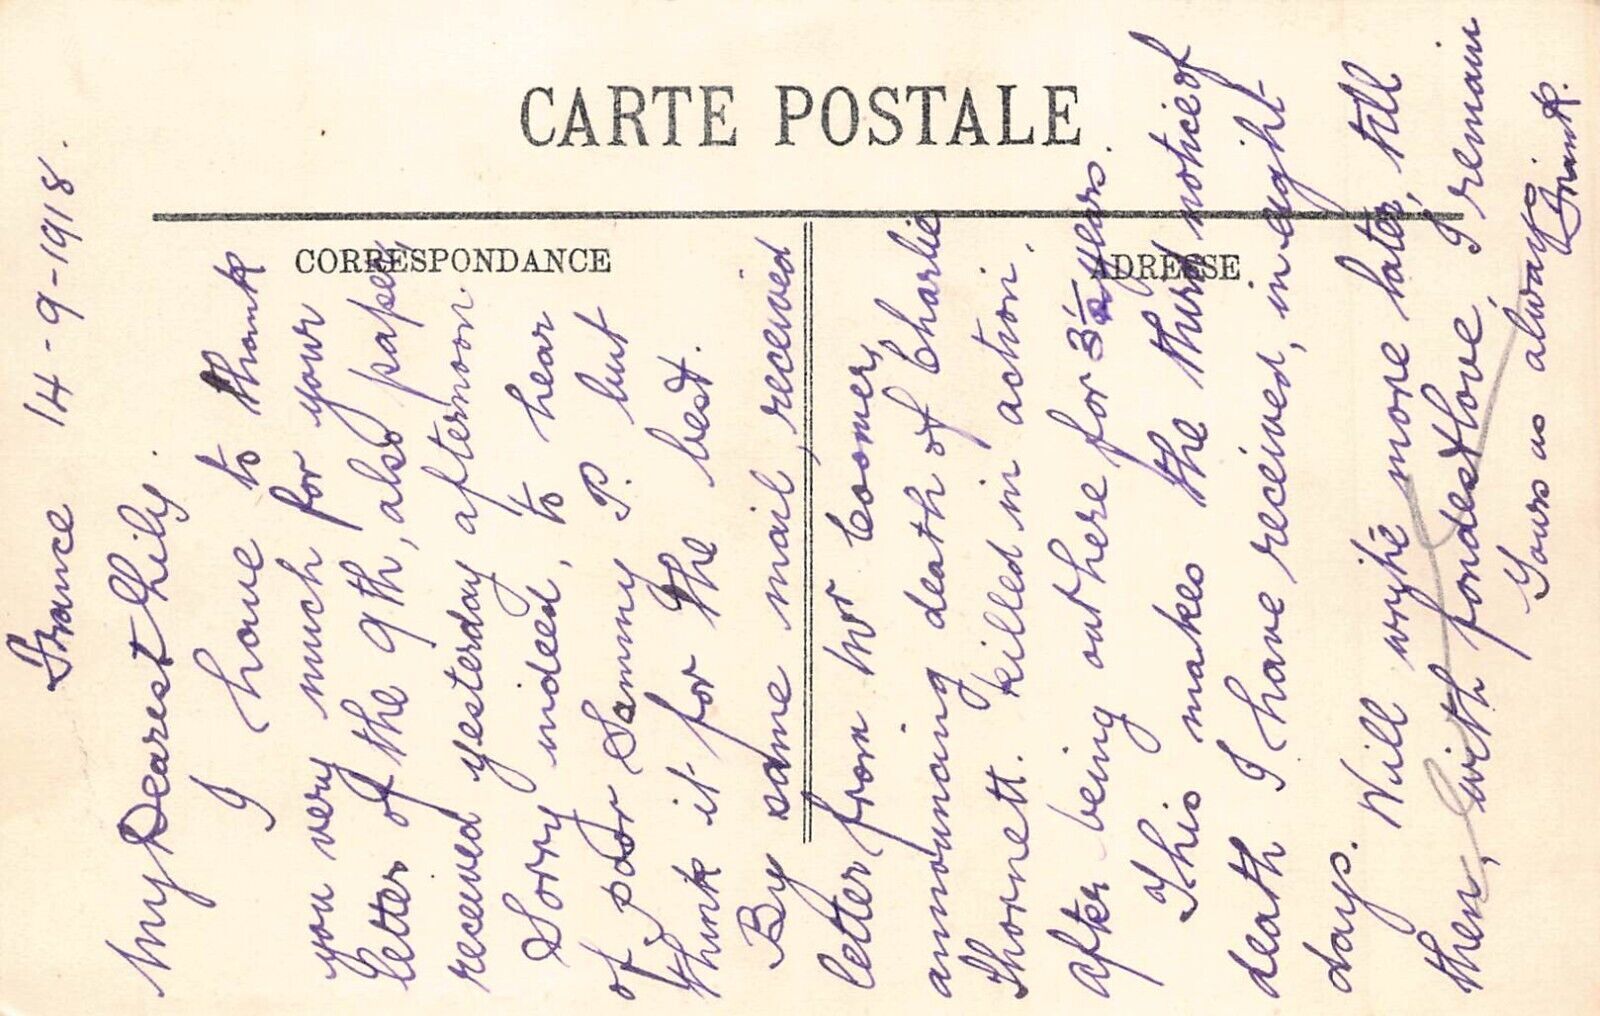 CARTE POSTALE
CORRESPONDANCE
ADRESSE
France 14-9-1918.
My Dearest Lily.
I have to thank
you very much for your
letter of the 9th, also paper,
received yesterday afternoon.
Sorry indeed, to hear
of poor Sammy P. but
think it for the best.
By same mail, received
letter from Mr Coomer,
announcing death of Charlie
Thornett. Killed in action.
after being out here for 3½ years.
This makes the third notice of
death I have received, in eight
days. Will write more later, till
then, with fondest love, I remain
Yours as always
Frank.